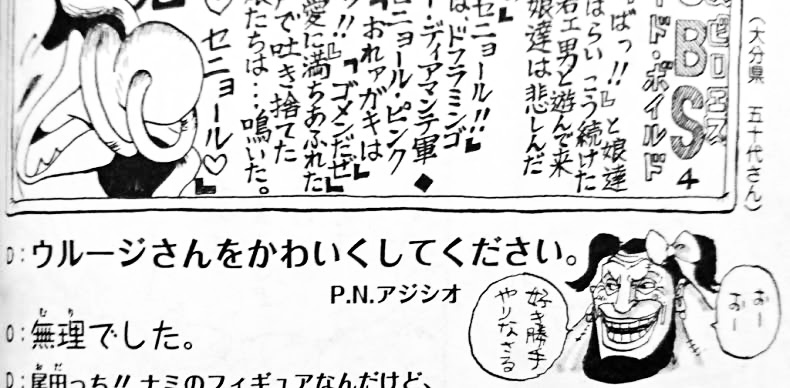 (大分県 五十代さん)
BS
ド・ボイルド
4
ばっ!!』と娘達
はらい こう続けた
若ェ男と遊んで来
娘達は悲しんだ
セニョール!!』
は、ドフラミンゴ
ー・ディアマンテ軍◆
ニョール・ピンク
『おれァガキは
!!』『ゴメンだぜ』
愛に満ちあふれた
で吐き捨てた
たちは…鳴いた。
♡セニョール♡』
D:ウルージさんをかわいくしてください。
P.N.アジシオ
おーおー
好き勝手
やりなさる
O:無理でした。
むり
D:尾田っち!!ナミのフィギュアなんだけど、
おだ